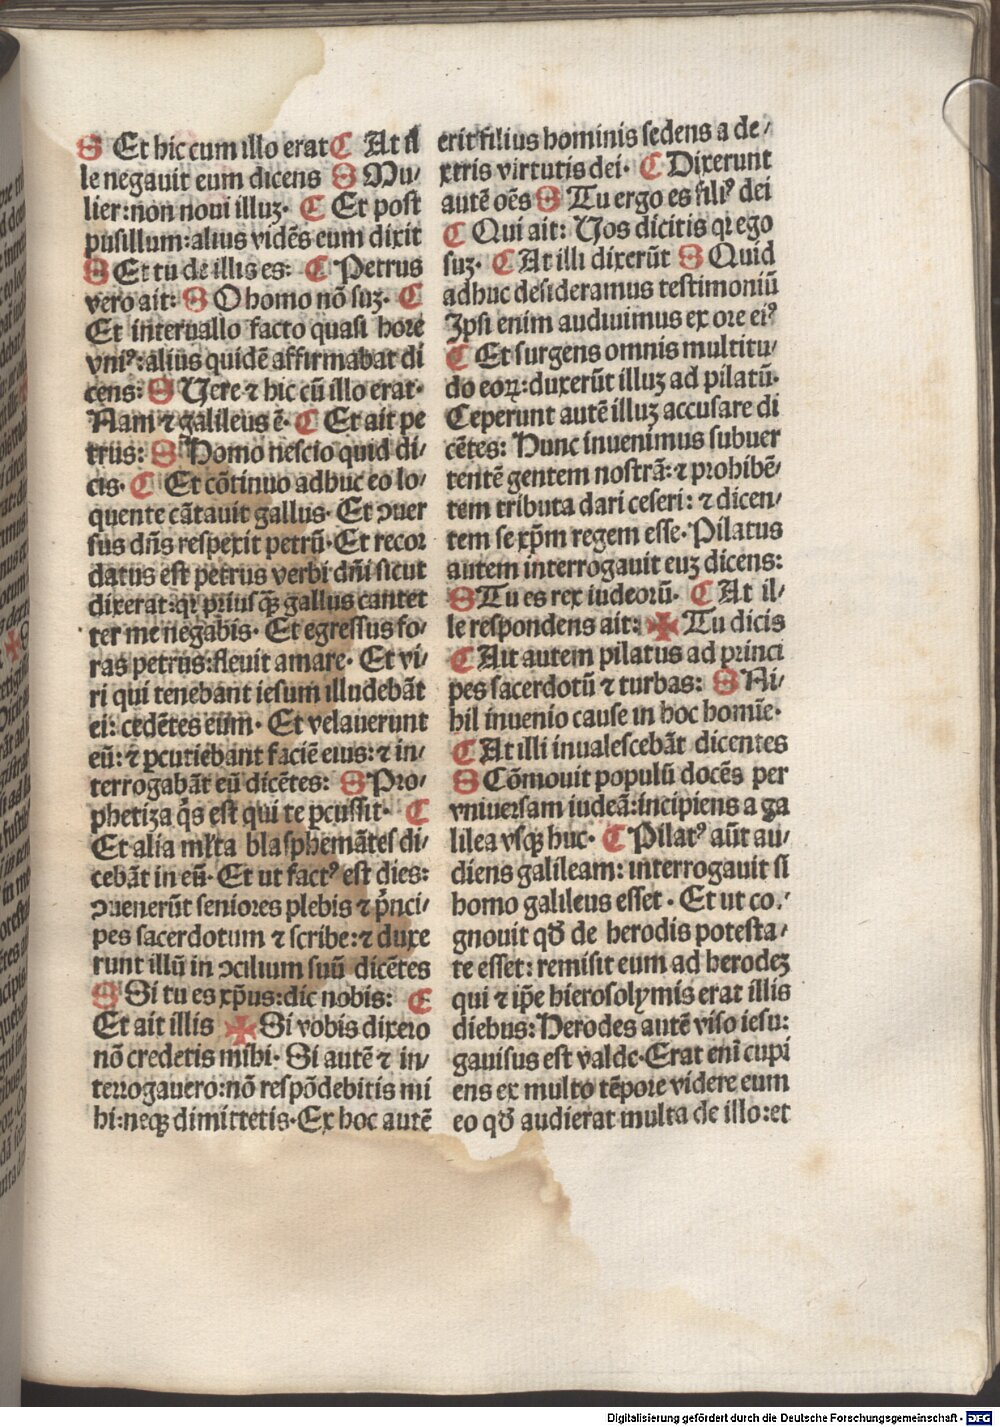 S Et hic cum illo erat C At il
le negauit eum dicens S Mu/
lier:non noui illuꝫ· C Et post
pusillum:alius vidēs eum dixit
S Et tu de illis es: C Petrus
vero ait: S O homo nō suꝫ· C
Et interuallo facto quasi hore
vniꝰ:alius quidē affirmabat di
cens: S Vere ⁊ hic cū illo erat·
Nam ⁊ galileus ē· C Et ait pe
trus: S Homo nescio quid di/
cis· C Et cōtinuo adhuc eo lo/
quente cātauit gallus· Et ꝯuer
sus dn̄s respexit petrū·Et recor
datus est petrus verbi dn̄i sicut
dixerat:qꝛ priusqꝫ̄ gallus cantet
ter me negabis· Et egressus fo/
ras petrus:fleuit amare· Et vi/
ri qui tenebant iesum illudebāt
ei: cedētes eum· Et velauerunt
eū: ⁊ ꝑcutiebant faciē eius: ⁊ in/
terrogabāt eū dicētes: S Pro/
phetiza q̇s est qui te ꝑcussit· C
Et alia ml̄ta blasphemātes di/
cebāt in eū· Et ut factꝰ est dies:
ꝯuenerūt seniores plebis ⁊ p̄nci/
pes sacerdotum ⁊ scribe: ⁊ duxe
runt illū in ꝯcilium suū dicētes
S Si tu es xp̄us:dic nobis: C
Et ait illis ✠ Si vobis dixero
nō credetis mihi· Si autē ⁊ in/
terrogauero:nō respōdebitis mi
hi:neqꝫ dimittetis·Ex hoc autē
erit filius hominis sedens a de/
xtris virtutis dei· C Dixerunt
autē oēs S Tu ergo es filiꝰ dei
C Qui ait: Vos dicitis qꝛ ego
suꝫ· C At illi dixerūt S Quid
adhuc desideramus testimoniū
Ipsi enim audiuimus ex ore eiꝰ
C Et surgens omnis multitu/
do eoꝝ:duxerūt illuꝫ ad pilatū·
Ceperunt autē illuꝫ accusare di
cētes: Hunc inuenimus subuer
tentē gentem nostrā: ⁊ prohibē/
tem tributa dari ceseri: ⁊ dicen/
tem se xp̄m regem esse·Pilatus
autem interrogauit euꝫ dicens:
S Tu es rex iudeorū· C At il/
le respondens ait: ✠ Tu dicis
C Ait autem pilatus ad princi
pes sacerdotū ⁊ turbas: S Ni/
hil inuenio cause in hoc homīe·
C At illi inualescebāt dicentes
S Cōmouit populū docēs per
vniuersam iudeā:incipiens a ga
lilea vsqꝫ huc· C Pilatꝰ aūt au/
diens galileam: interrogauit si
homo galileus esset · Et ut co·/
gnouit qđ de herodis potesta/
te esset: remisit eum ad herodeꝫ
qui ⁊ ip̄e hierosolymis erat illis
diebus:Herodes autē viso iesu:
gauisus est valde·Erat enī cupi
ens ex multo tēpore videre eum
eo qđ audierat multa de illo:et
Digitalisierung gefördert durch die Deutsche Forschungsgemeinschaft - DFG